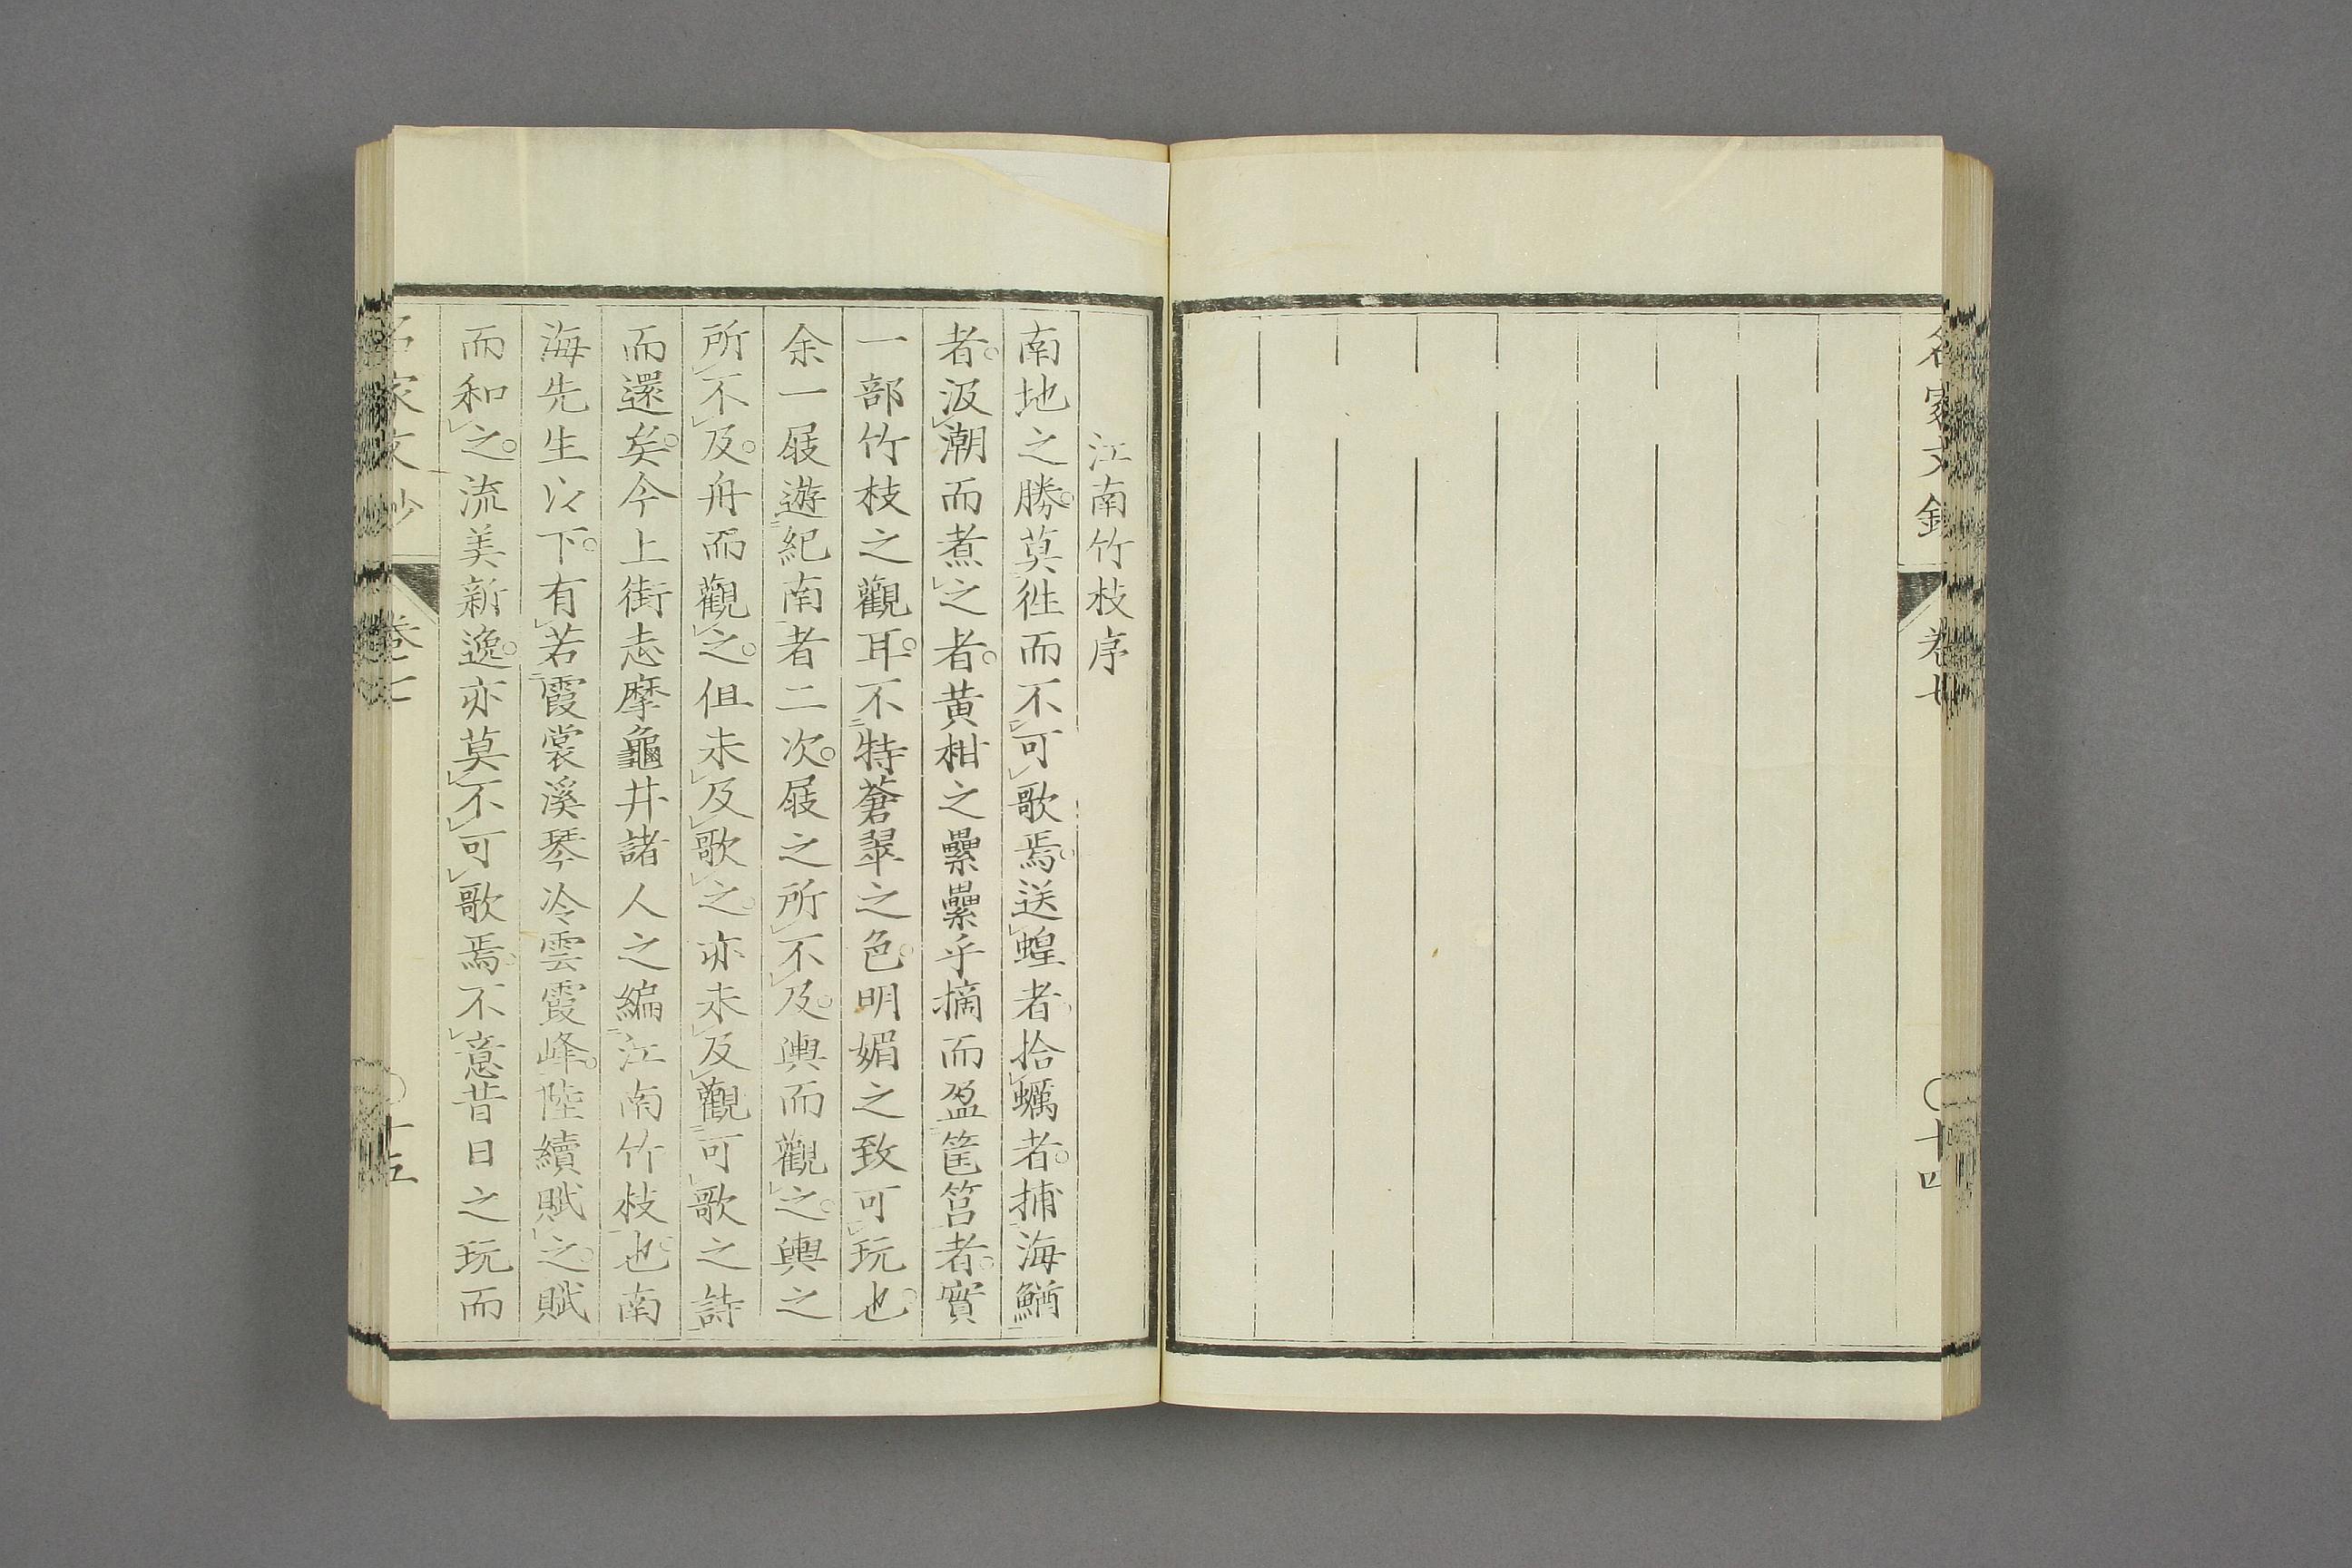 名家文鈔
卷七
十四
江南竹枝序
南地之勝。莫徃而不可歌焉。送蝗者。拾蠣者。捕海鰌
者。汲潮而煮之者。黄柑之纍纍乎摘而盈筐筥者。實
一部竹枝之觀耳。不特蒼翠之色。明媚之致可玩也。
余一屐遊紀南者二次。屐之所不及。輿而觀之。輿之
所不及。舟而觀之。但未及歌之。亦未及觀可歌之詩
而還矣。今上街志摩龜井諸人之編江南竹枝也。南
海先生以下。有若霞裳溪琴冷雲霞峰。陸續賦之。賦
而和之。流美新逸。亦莫不可歌焉。不意昔日之玩而
名家文鈔
卷七
十五